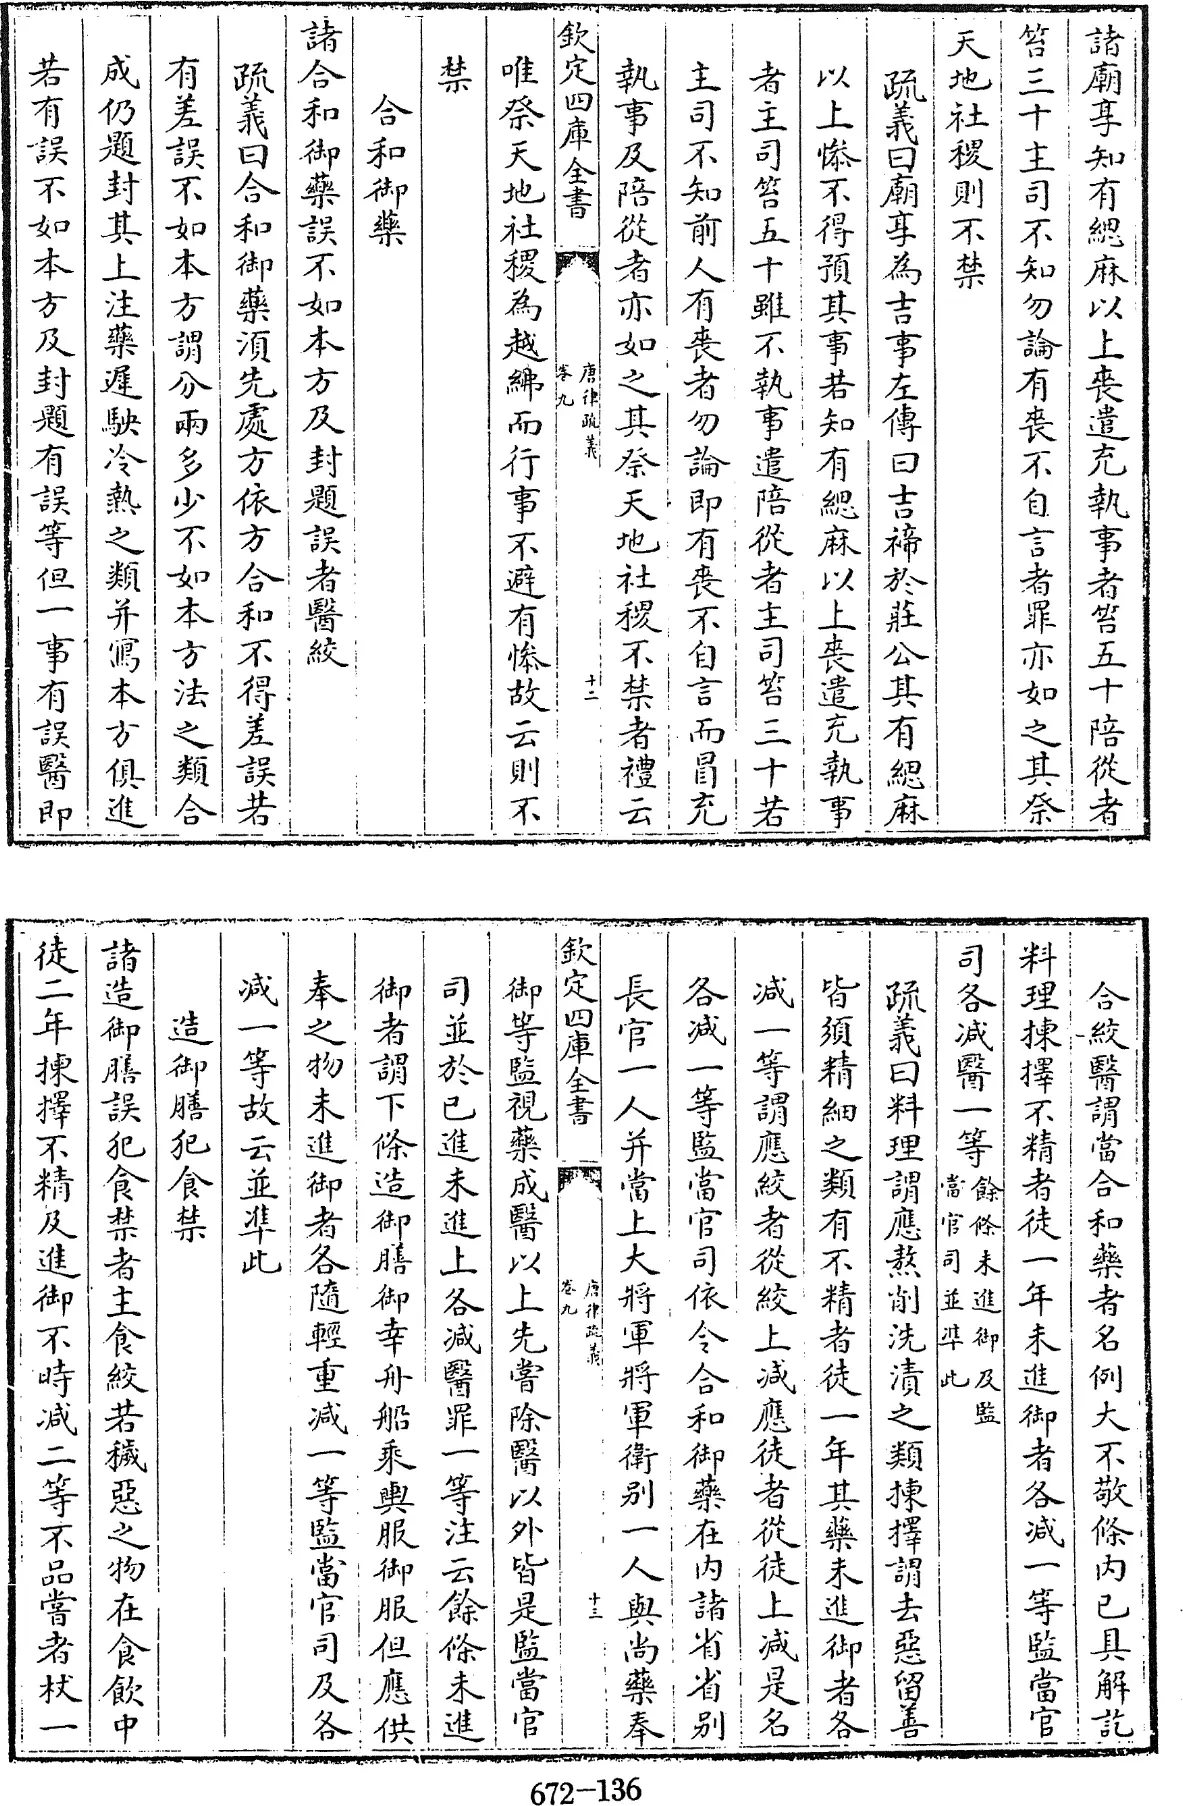 諸廟享知有緦麻以上喪遣充執事者笞五十陪從者
笞三十主司不知勿論有喪不自言者罪亦如之其祭
天地社稷則不禁
疏義曰廟享為吉事左傳曰吉禘於莊公其有緦麻
以上慘不得預其事若知有緦麻以上喪遣充執事
者主司笞五十雖不執事遣陪從者主司笞三十若
主司不知前人有喪者勿論即有喪不自言而冒充
執事及陪從者亦如之其祭天地社稷不禁者禮云
欽定四庫全書
唐律疏義
卷九
十二
唯祭天地社稷為越紼而行事不避有慘故云則不
禁
合和御藥
諸合和御藥誤不如本方及封題誤者醫絞
疏義曰合和御藥須先處方依方合和不得差誤若
有差誤不如本方謂分兩多少不如本方法之類合
成仍題封其上注藥遲駃冷熱之類并寫本方俱進
若有誤不如本方及封題有誤等但一事有誤醫即
合絞醫謂當合和藥者名例大不敬條内已具解訖
料理揀擇不精者徒一年未進御者各減一等監當官
司各減醫一等餘條未進御及監當官司並準此
疏義曰料理謂應熬削洗漬之類揀擇謂去惡留善
皆須精細之類有不精者徒一年其藥未進御者各
減一等謂應絞者從絞上減應徒者從徒上減是名
各減一等監當官司依令合和御藥在内諸省省别
長官一人并當上大將軍將軍衛别一人與尚藥奉
欽定四庫全書
唐律疏義
卷九
十三
御等監視藥成醫以上先嘗除醫以外皆是監當官
司並於已進未進上各減醫罪一等注云餘條未進
御者謂下條造御膳御幸舟船乘輿服御服但應供
奉之物未進御者各隨輕重減一等監當官司及各
減一等故云並準此
造御膳犯食禁
諸造御膳誤犯食禁者主食絞若穢惡之物在食飲中
徒二年揀擇不精及進御不時減二等不品嘗者杖一
672-136